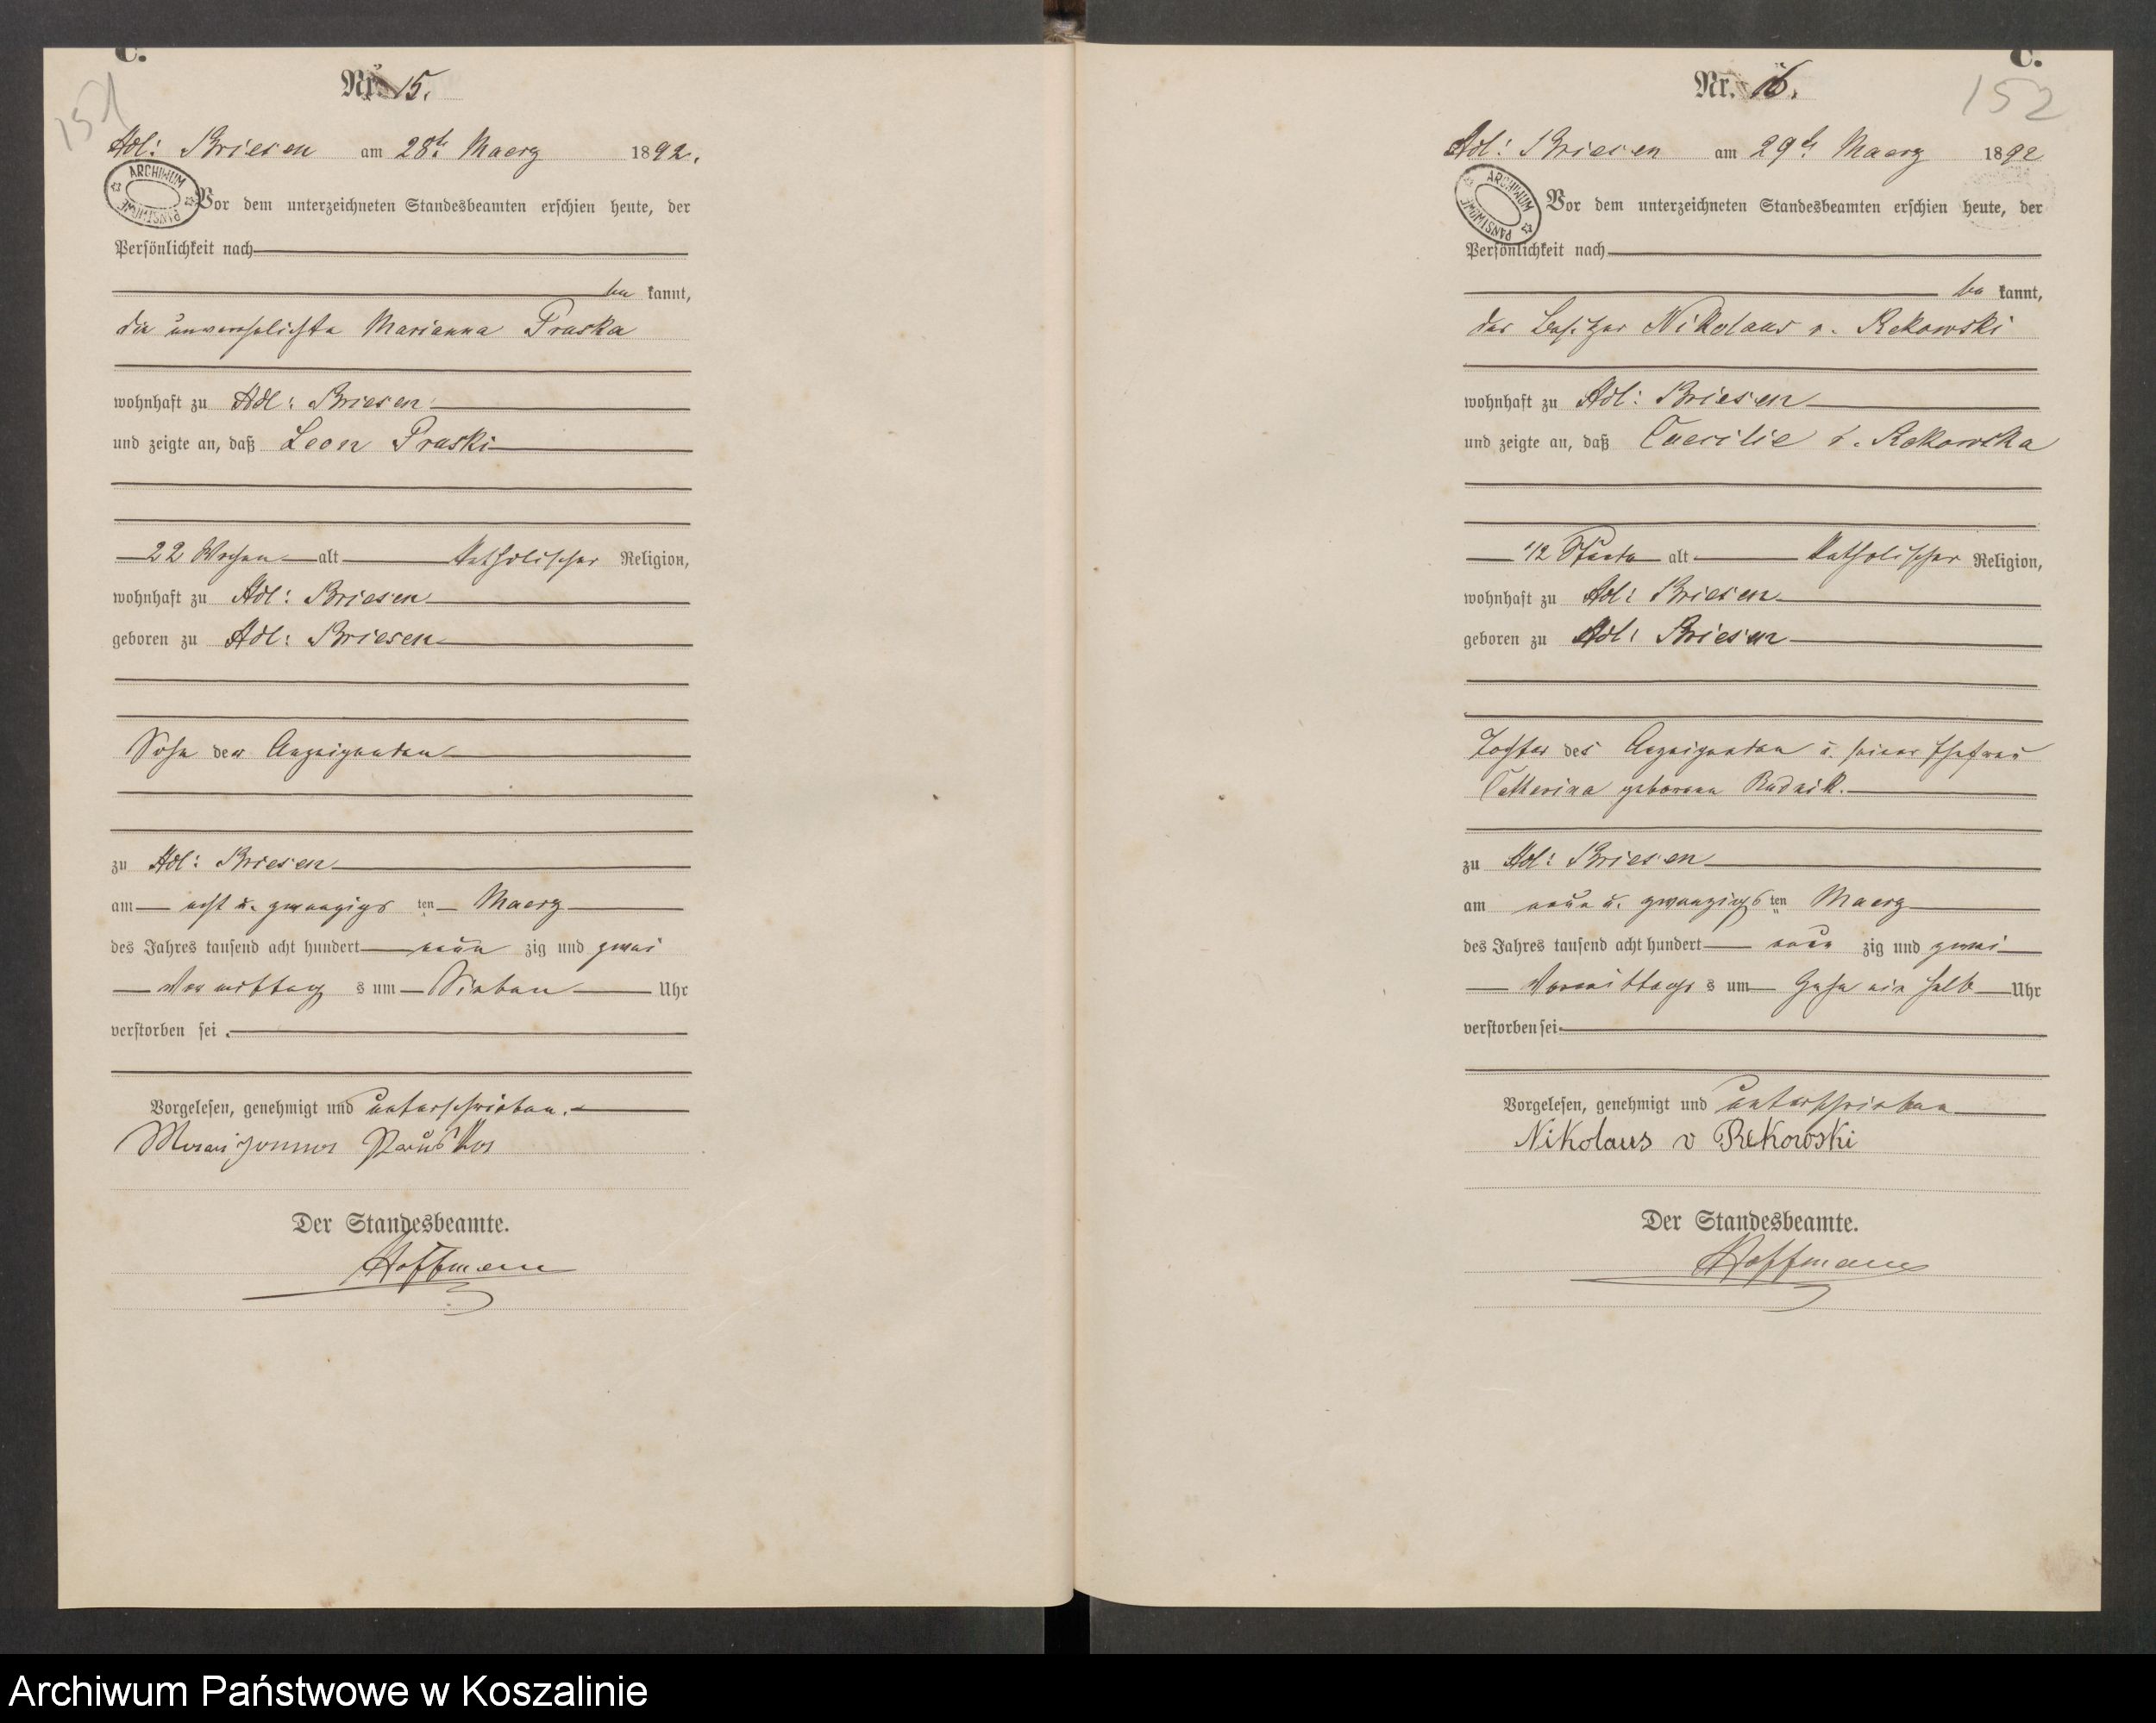 C.
Nr. 15.
151
Adl: Briesen am 28t. Maerz 1892.
ARCHIWUM PAŃSTWOWE
Vor dem unterzeichneten Standesbeamten erschien heute, der
Persönlichkeit nach
be kannt,
die unverehelichte Marianna Pruska
wohnhaft zu Adl: Briesen
und zeigte an, daß Leon Pruski
22 Wochen alt katholischer Religion,
wohnhaft zu Adl: Briesen
geboren zu Adl: Briesen
Sohn der Anzeigenden
zu Adl: Briesen
am acht u. zwanzigs ten Maerz
des Jahres tausend acht hundert neun zig und zwei
Vormittag s um Sieben Uhr
verstorben sei.
Vorgelesen, genehmigt und unterschrieben.
Der Standesbeamte.
Hoffmann
C.
Nr. 16.
152
Adl: Briesen am 29t. Maerz 1892
ARCHIWUM PAŃSTWOWE
Vor dem unterzeichneten Standesbeamten erschien heute, der
Persönlichkeit nach
be kannt,
der Besitzer Nikolaus v. Rekowski
wohnhaft zu Adl: Briesen
und zeigte an, daß Caecilie v. Rekowska
1/2 Stunde alt katholischer Religion,
wohnhaft zu Adl: Briesen
geboren zu Adl: Briesen
Tochter des Anzeigenden u. seiner Ehefrau
Catherina geborene Rudnik.
zu Adl: Briesen
am neun u. zwanzigs ten Maerz
des Jahres tausend acht hundert neun zig und zwei
Vormittags s um Zehn ein halb Uhr
verstorben sei
Vorgelesen, genehmigt und unterschrieben
Nikolaus v Rekowski
Der Standesbeamte.
Hoffmann
Archiwum Państwowe w Koszalinie